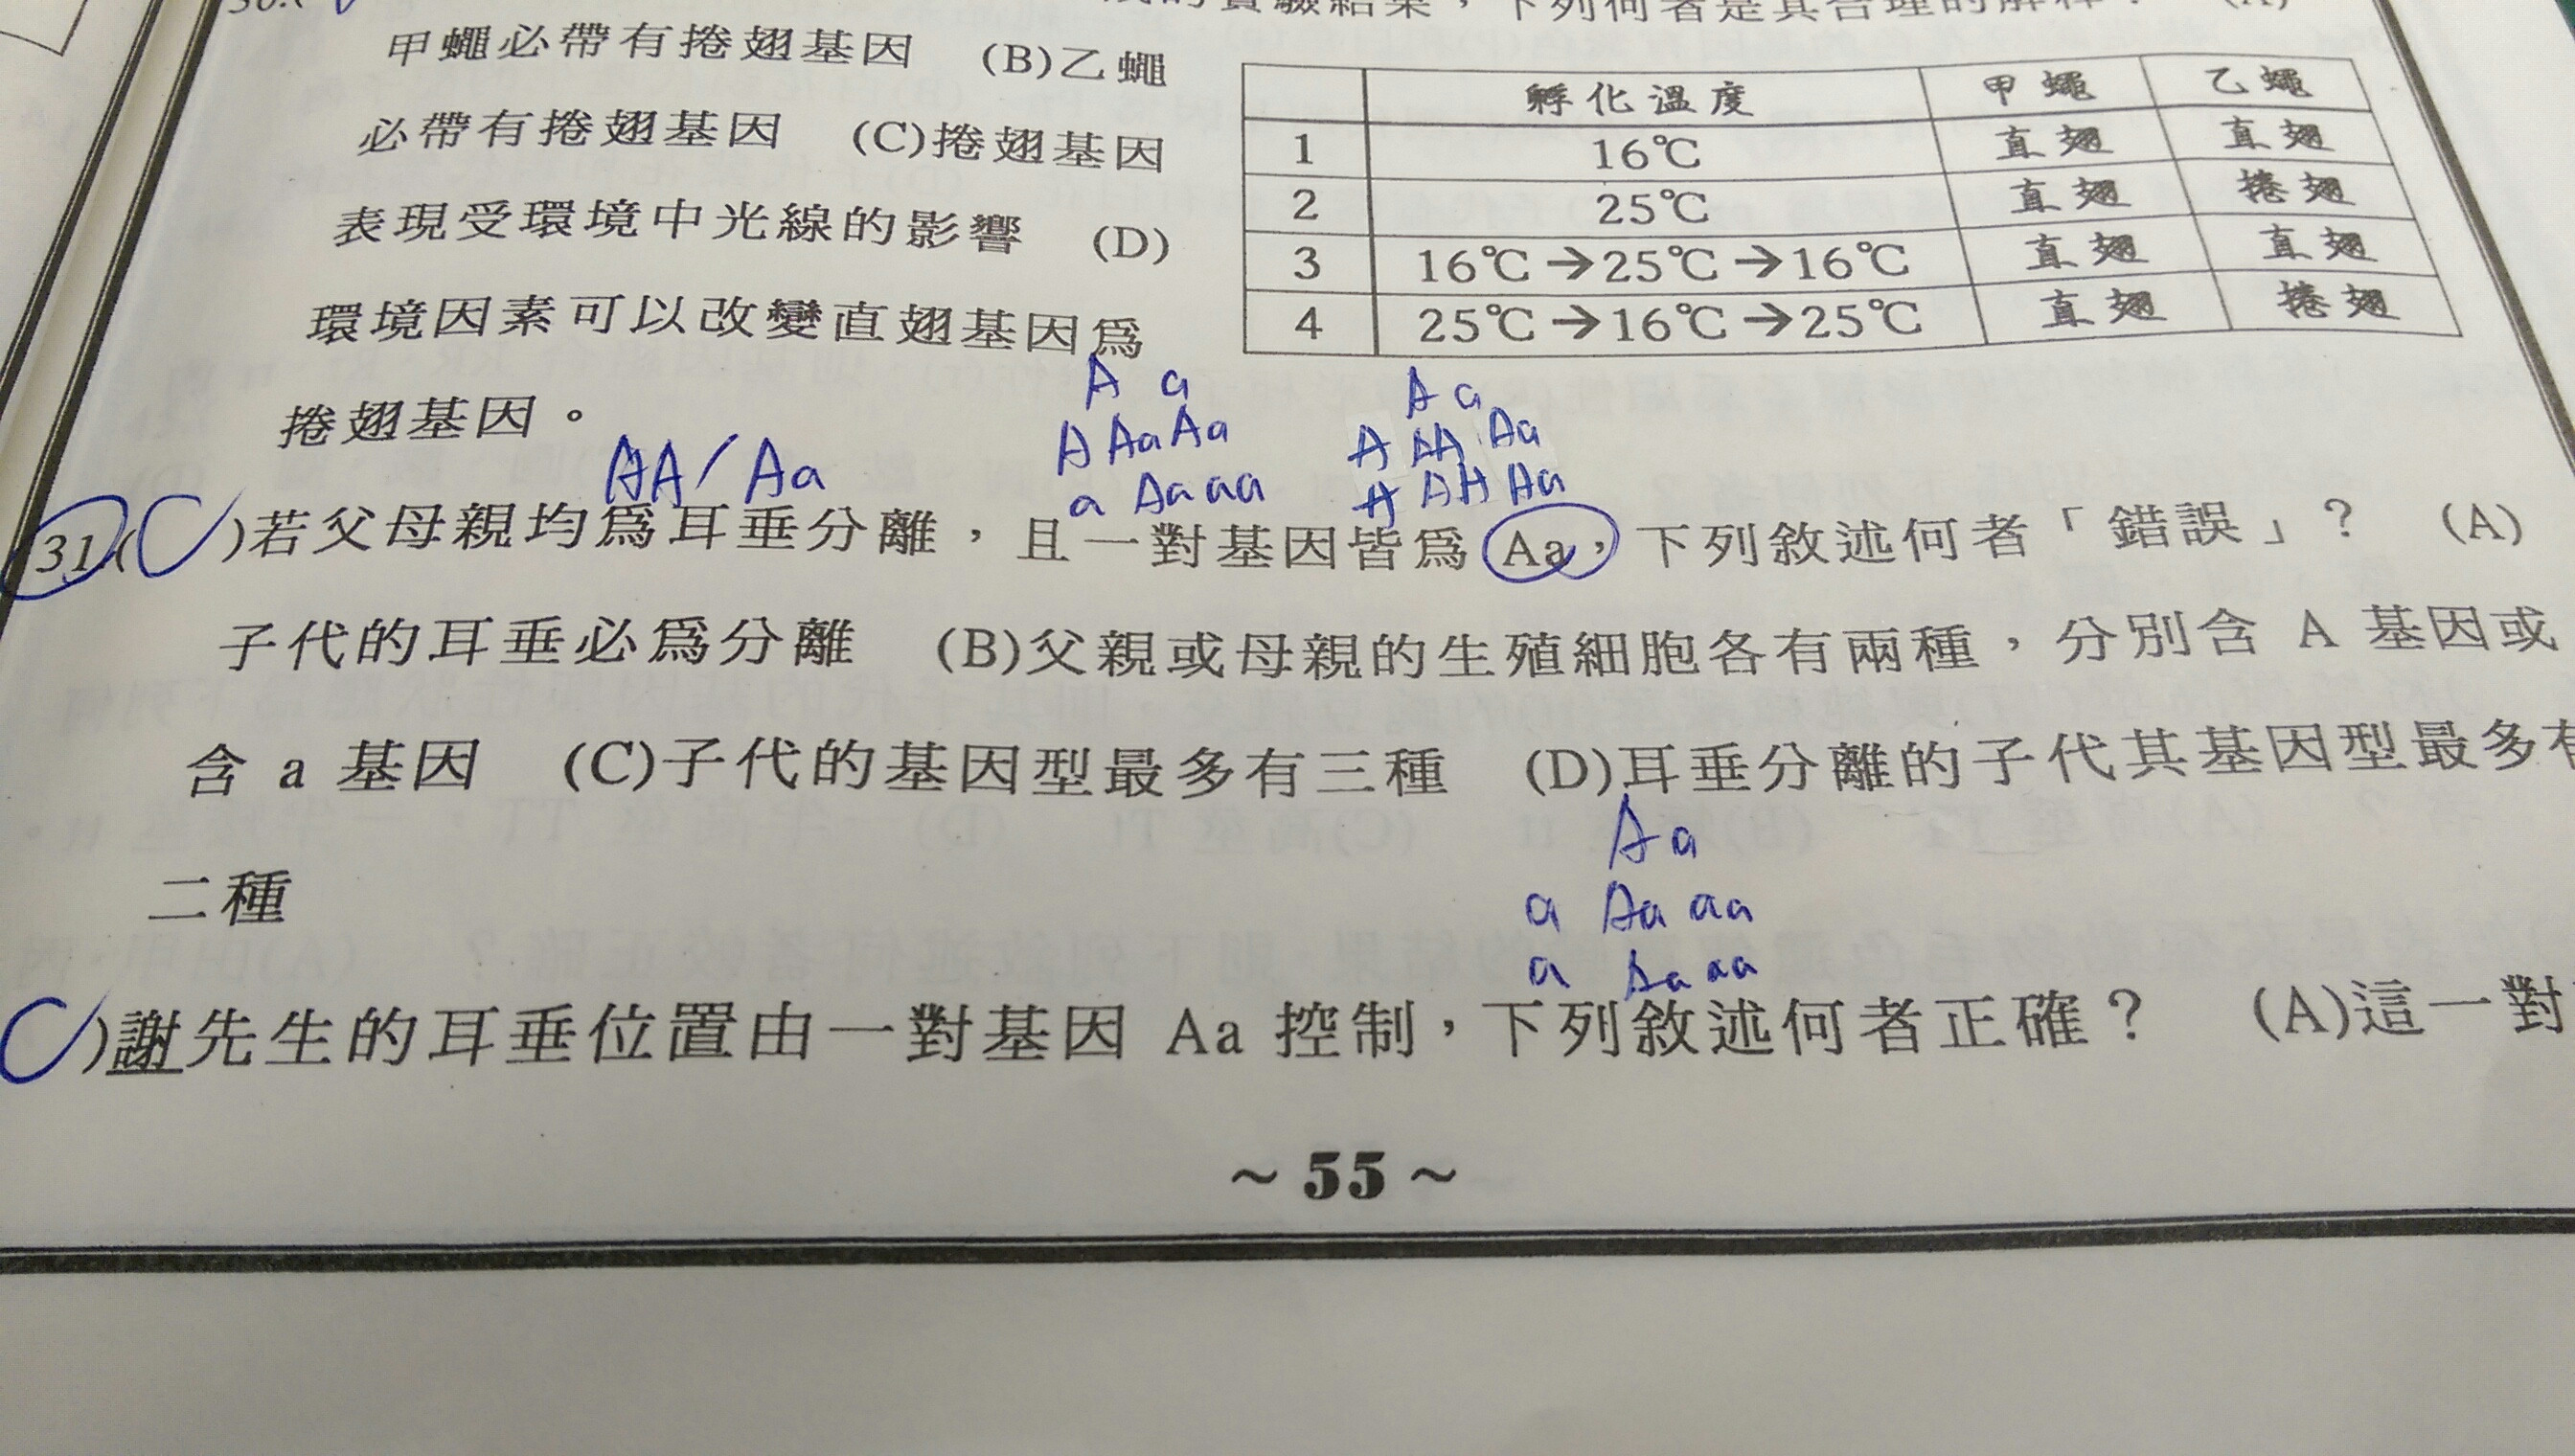 30.(
的實驗結果，下列何者是其合理的解釋？ (A)
甲蠅必帶有捲翅基因 (B)乙蠅
必帶有捲翅基因 (C)捲翅基因
表現受環境中光線的影響 (D)
環境因素可以改變直翅基因為
捲翅基因。
孵化溫度 甲蠅 乙蠅
1 16℃ 直翅 直翅
2 25℃ 直翅 捲翅
3 16℃→25℃→16℃ 直翅 直翅
4 25℃→16℃→25℃ 直翅 捲翅
A a
A Aa Aa
a Aa aa
A a
A AA Aa
A AA Aa
AA/Aa
31.(C)若父母親均為耳垂分離，且一對基因皆為 Aa，下列敘述何者「錯誤」？ (A)
子代的耳垂必為分離 (B)父親或母親的生殖細胞各有兩種，分別含 A 基因或
含 a 基因 (C)子代的基因型最多有三種 (D)耳垂分離的子代其基因型最多有
二種
A a
a Aa aa
a Aa aa
C)謝先生的耳垂位置由一對基因 Aa 控制，下列敘述何者正確？ (A)這一對
~55~